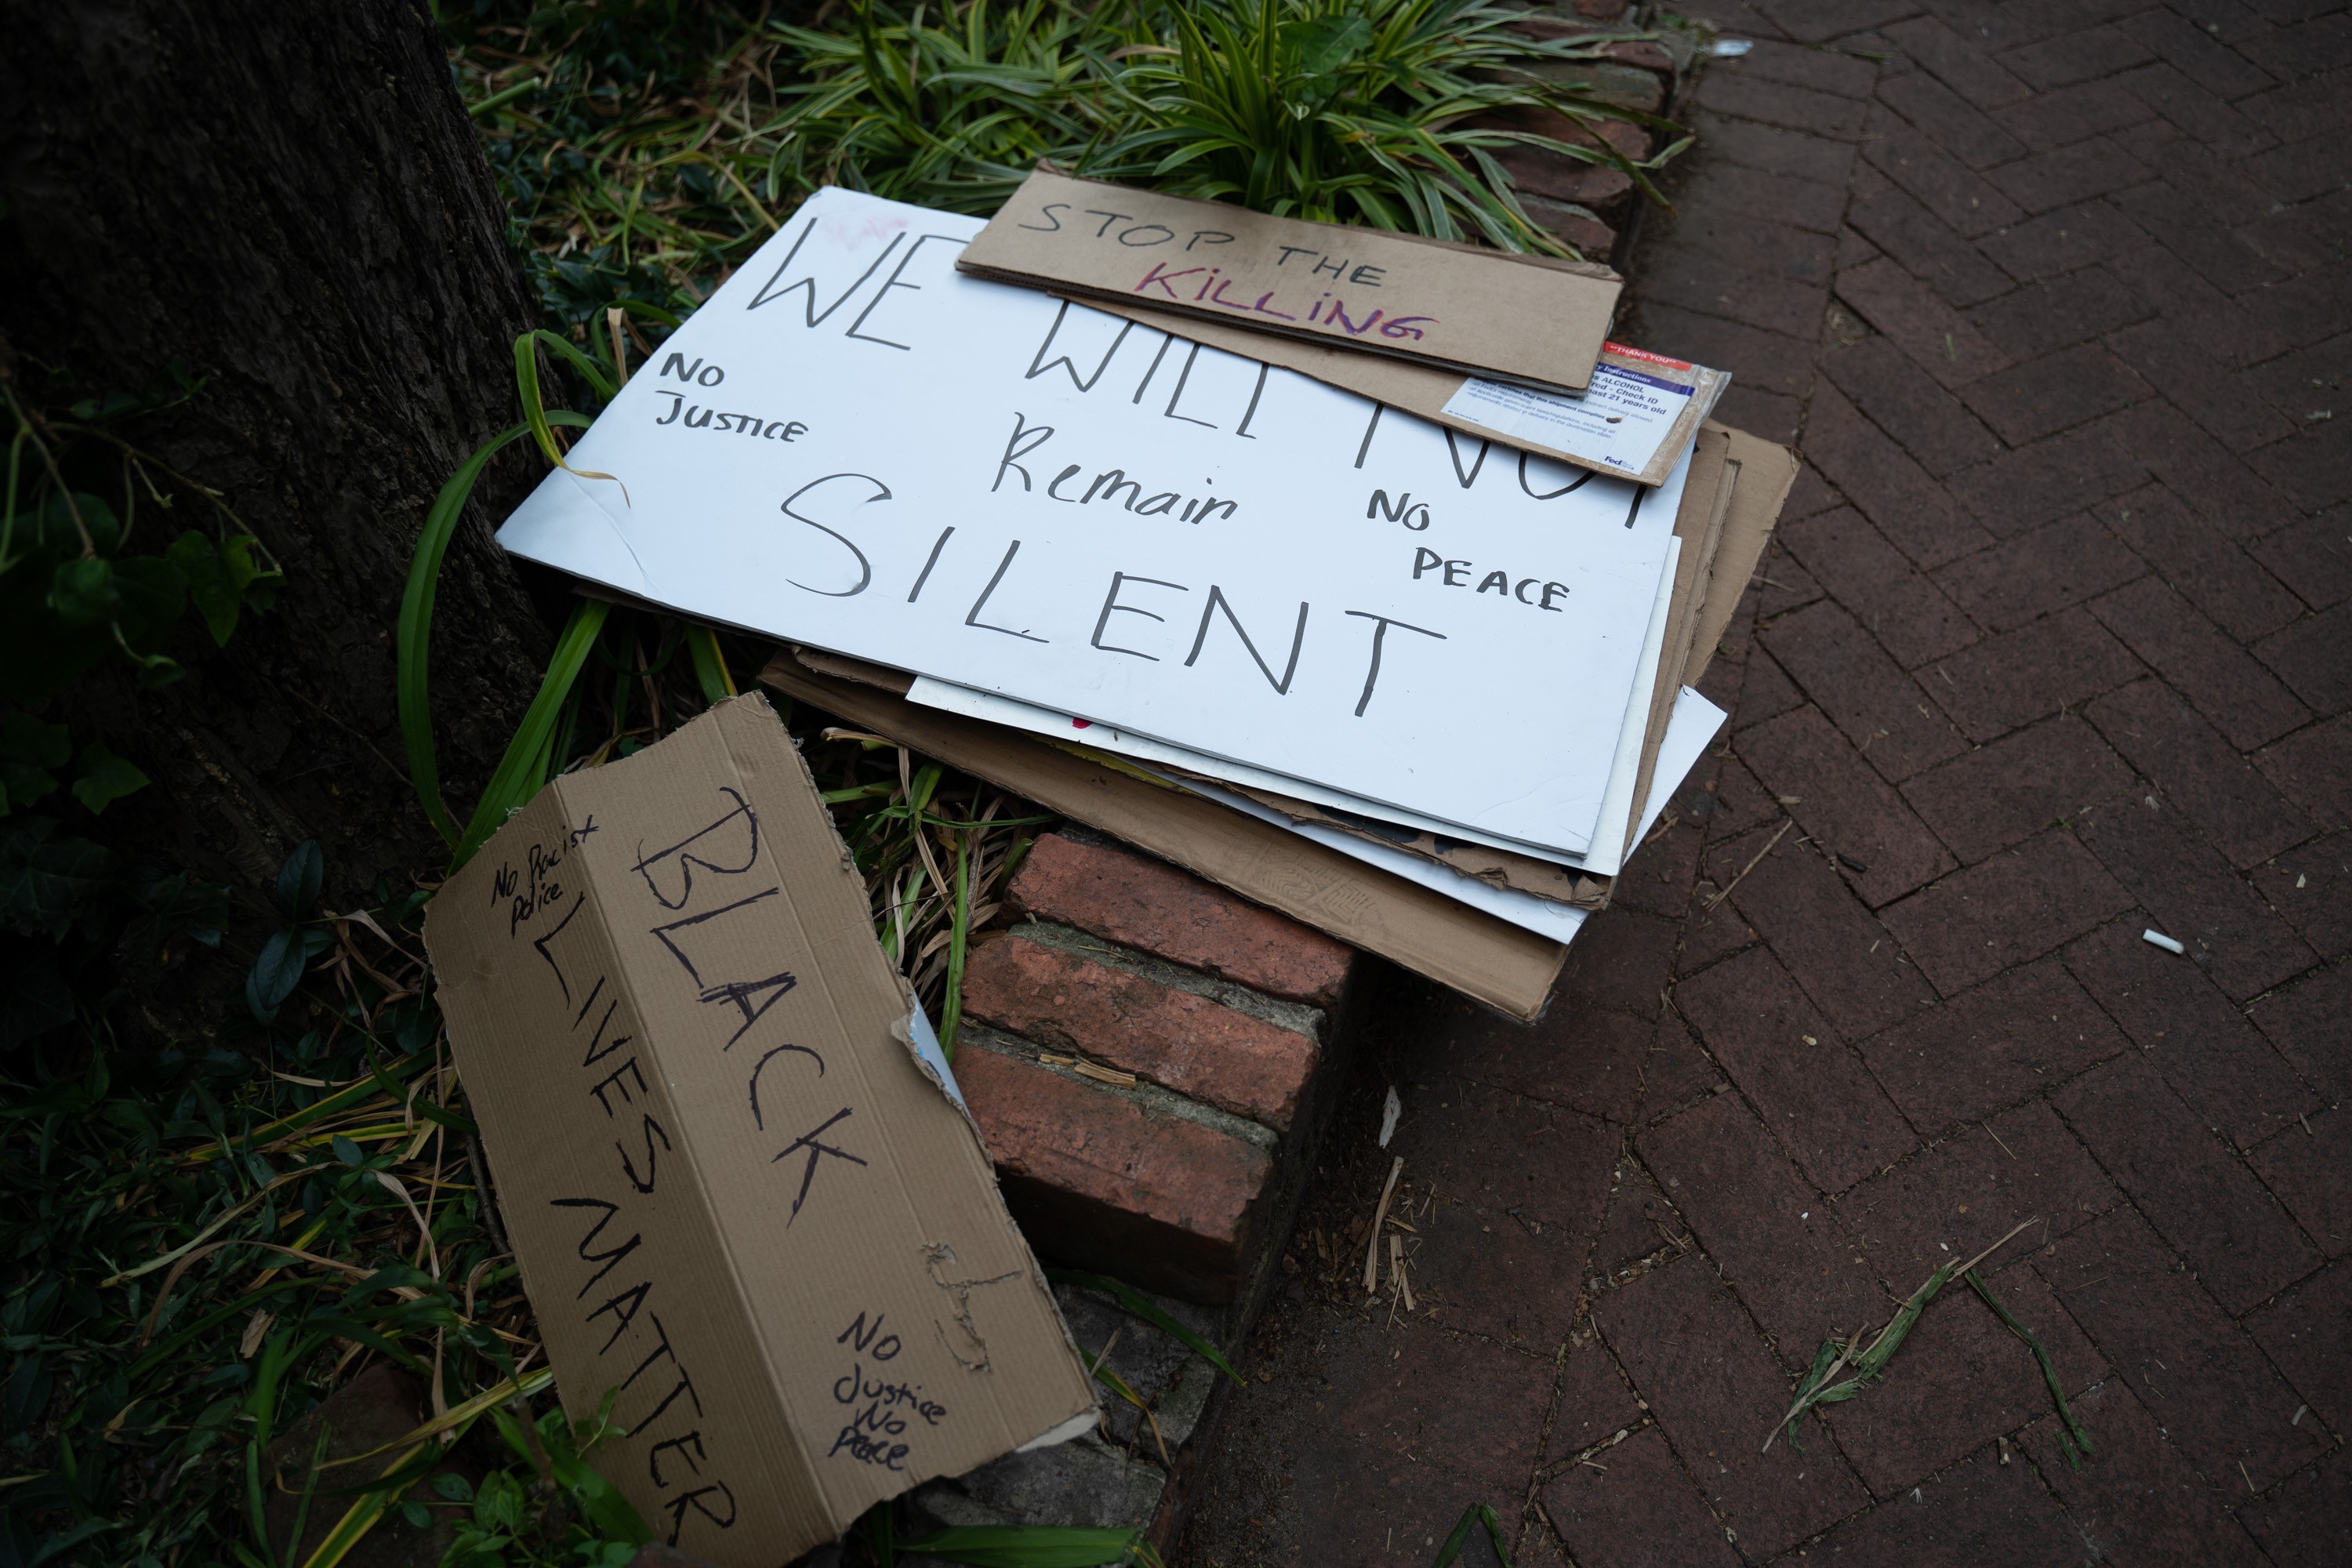 STOP THE
KiLLiNG
WE WILL NOT
NO
JUSTICE
Remain
SILENT
NO
PEACE
"THANK YOU"
Instructions
ALCOHOL
Check ID
21 years old
FedEx
BLACK
LIVES MATTER
No Racist
Police
No
Justice
No
Peace